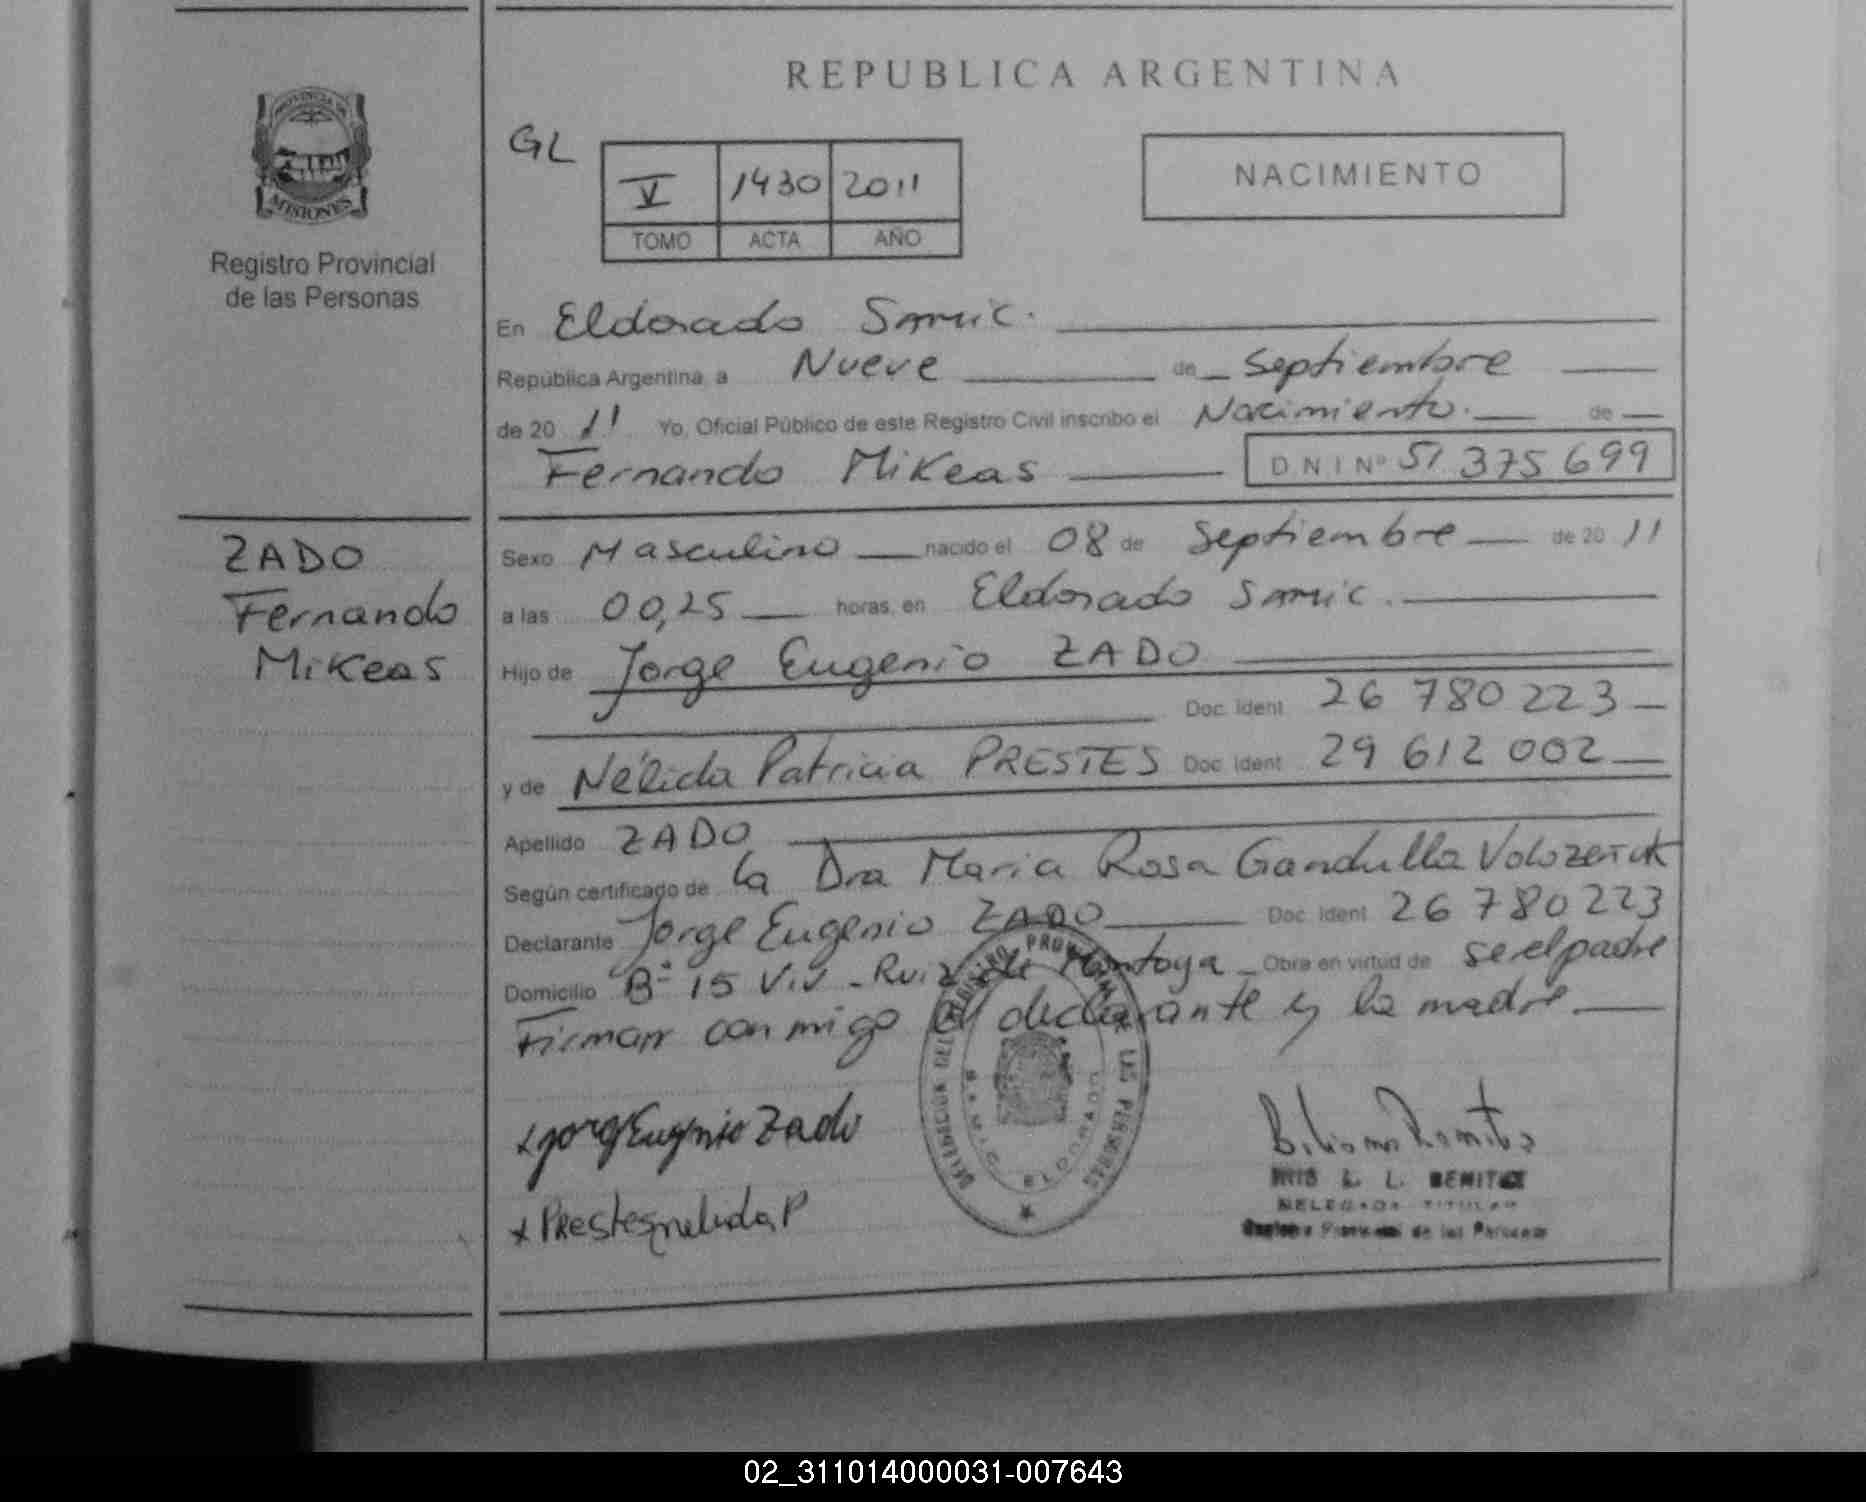 REPUBLICA ARGENTINA
PROVINCIA DE
MISIONES
Registro Provincial
de las Personas
GL
V 1430 2011
TOMO ACTA AÑO
NACIMIENTO
En Eldorado Samic.
República Argentina, a Nueve de Septiembre
de 20 11 Yo, Oficial Público de este Registro Civil inscribo el Nacimiento. de
Fernando Mikeas DNI Nº 51 375 699
ZADO
Fernando
Mikeas
Sexo Masculino nacido el 08 de Septiembre de 20 11
a las 00,25 horas, en Eldorado Samic.
Hijo de Jorge Eugenio ZADO
Doc. Ident 26 780 223
y de Nélida Patricia PRESTES Doc. Ident 29 612 002
Apellido ZADO
Según certificado de la Dra Maria Rosa Gandulla
Declarante Jorge Eugenio ZADO Doc. Ident 26 780 223
Domicilio Bº 15 Viv - Ruiz de Montoya Obra en virtud de se el padre
Firman conmigo el declarante y la madre
x Jorge Eugenio Zado
x Prestes nelida P
DELEGACION DEL REGISTRO PROVINCIAL DE LAS PERSONAS
S.A.M.I.C. ELDORADO
L. L. BENITEZ
DELEGADA TITULAR
Registro Provincial de las Personas
02_311014000031-007643